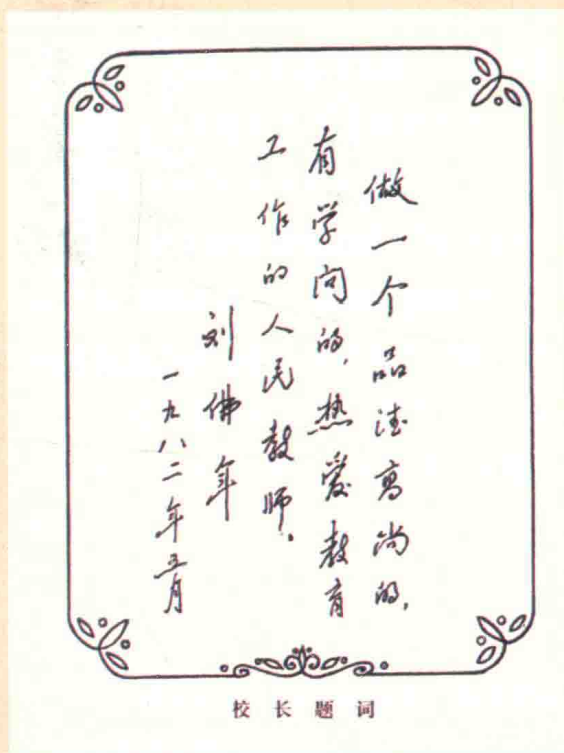 做一个品德高尚的,
有学问的,热爱教育
工作的人民教师.
刘佛年
一九八二年五月
校长题词